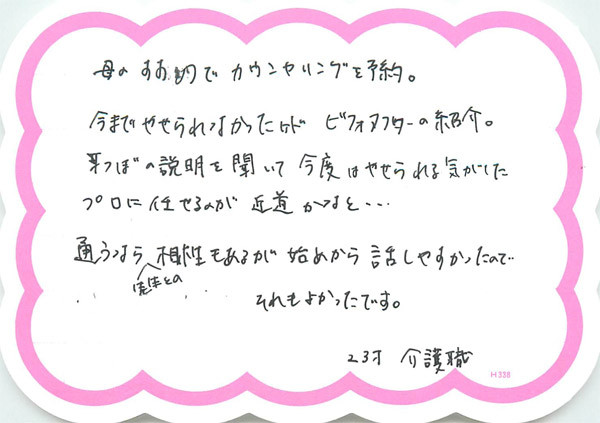 母のすすめでカウンセリングを予約。
今までやせられなかったけど ビフォアフターの紹介。
耳つぼの説明を聞いて 今度はやせられる気がした
プロに任せるのが 近道かなと・・・
通うなら 先生との 相性もあるが 始めから 話しやすかったので
それもよかったです。
23才 介護職
H338